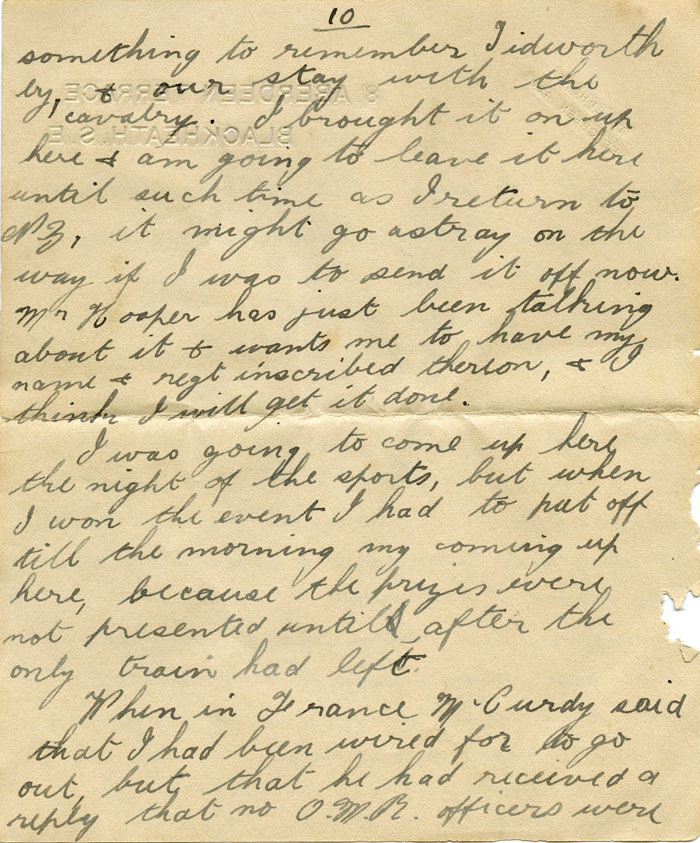 10
something to remember Tidworth
by, & our stay with the
cavalry. I brought it on up
here & am going to leave it here
until such time as I return to
NZ, it might go astray on the
way if I was to send it off now.
Mr Hooper has just been talking
about it & wants me to have my
name & regt inscribed thereon, & I
think I will get it done.
I was going to come up here
the night of the sports, but when
I won the event I had to put off
till the morning my coming up
here, because the prizes were
not presented until after the
only train had left.
When in France McCurdy said
that I had been wired for to go
out, but that he had received a
reply that no O.M.R. officers were
8 ABERDEEN TERRACE
BLACKHEATH. S.E.